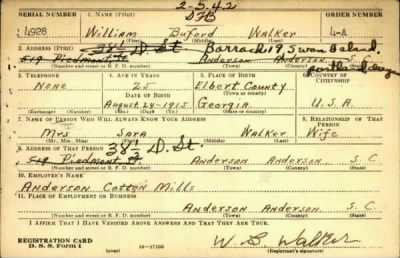 2-5-42
SERIAL NUMBER 1. NAME (Print) ORDER NUMBER
4928 William Buford Walker
(First) (Middle) (Last)
2. ADDRESS (Print) 38½ D. St. Barrack 19, Swan Island.
519 Piedmont St Anderson Anderson
(Number and street or R. F. D. number) (Town) (County) (State)
3. TELEPHONE 4. AGE IN YEARS 5. PLACE OF BIRTH 6. COUNTRY OF CITIZENSHIP
None 25 Elbert County
DATE OF BIRTH (Town or county)
August 24-1915 Georgia U.S.A.
(Exchange) (Number) (Mo.) (Day) (Yr.) (State or country)
7. NAME OF PERSON WHO WILL ALWAYS KNOW YOUR ADDRESS 8. RELATIONSHIP OF THAT PERSON
Mrs Sara Walker Wife
(Mr., Mrs., Miss) (First) (Middle) (Last)
9. ADDRESS OF THAT PERSON 38½ D. St.
519 Piedmont St Anderson Anderson S. C.
(Number and street or R. F. D. number) (Town) (County) (State)
10. EMPLOYER'S NAME
Anderson Cotton Mills
11. PLACE OF EMPLOYMENT OR BUSINESS
Anderson Anderson S. C.
(Number and street or R. F. D. number) (Town) (County) (State)
I AFFIRM THAT I HAVE VERIFIED ABOVE ANSWERS AND THAT THEY ARE TRUE.
REGISTRATION CARD
D. S. S. Form 1 (over) 16-17105 W. B. Walker
(Registrant's signature)